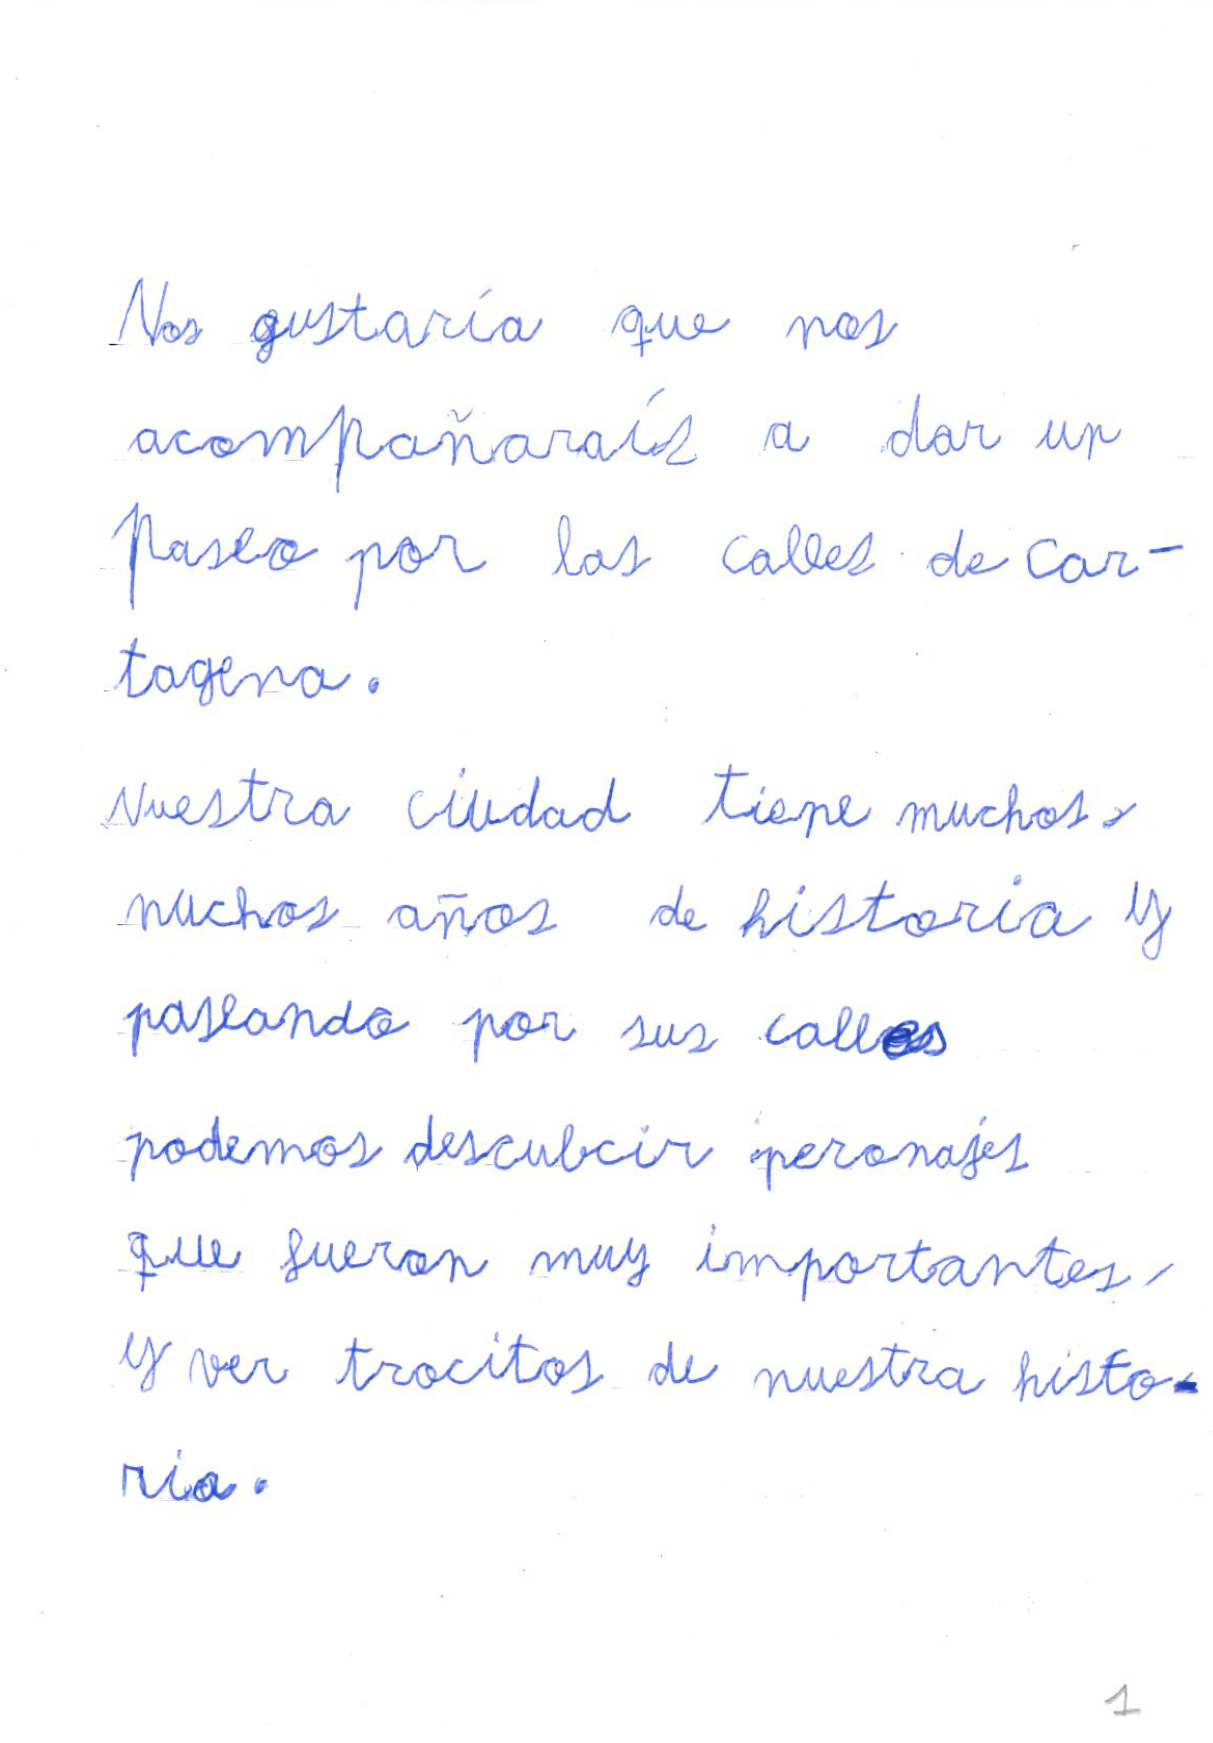 Nos gustaría que nos
acompañaraís a dar un
Paseo por las calles de Car-
tagena.
Nuestra ciudad tiene muchos,
nuchos años de historia y
paseando por sus calles
podemos descubcir peronajes
que fueron muy importantes,
y ver trocitos de nuestra histo-
ria.
1